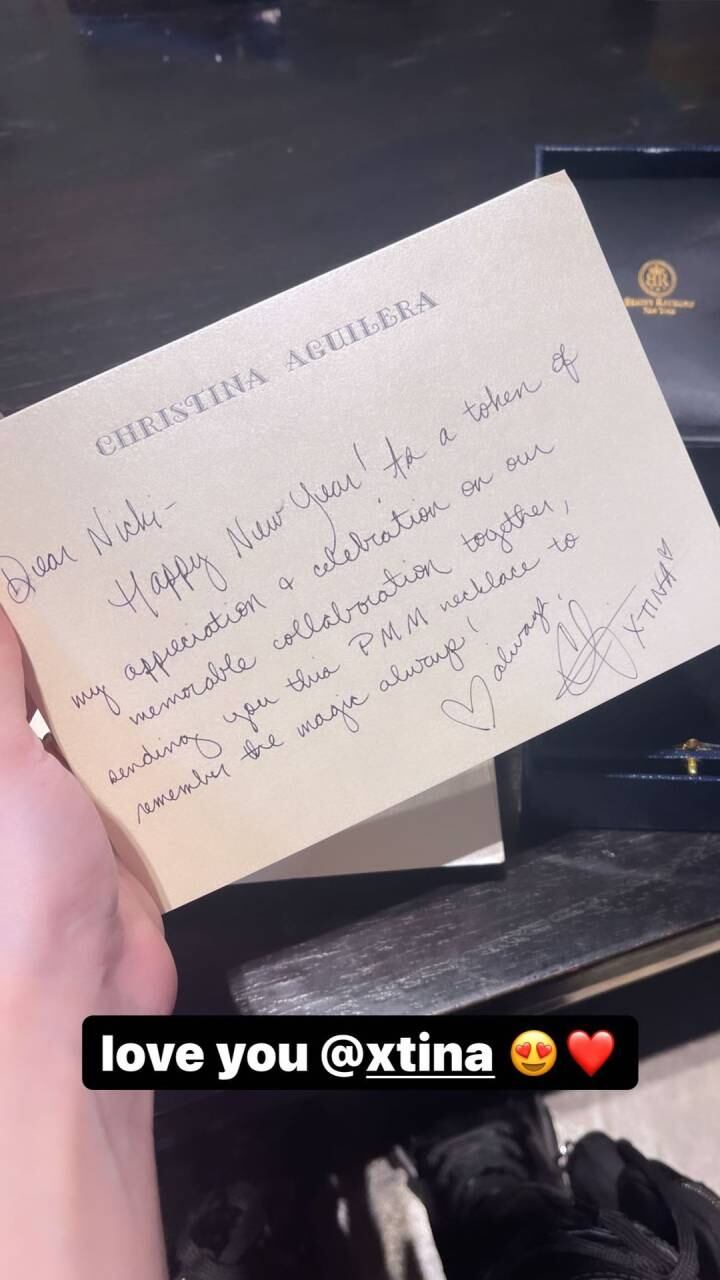 CHRISTINA AGUILERA
Dear Nicki-
Happy New Year! As a token of
my appreciation & celebration on our
memorable collaboration together,
sending you this PMM necklace to
remember the magic always!
always,
XTINA
BR
New York
love you @xtina 😍❤️